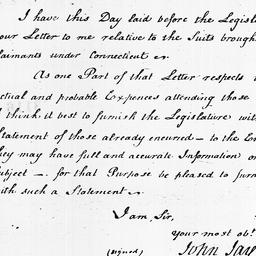 I have this Day laid before the Legisl
our Letter to me relative to the Suits brough
laimants under Connecticut &c.
As one Part of that Letter respects
ctual and probable Expences attending those
I think it best to furnish the Legislature wit
tatement of those already incurred – to the En
hey may have full and accurate Information on
ubject – for that Purpose be pleased to furn
ith such a Statement.
I am, Sir,
Your most obt.
(signed) John Jay